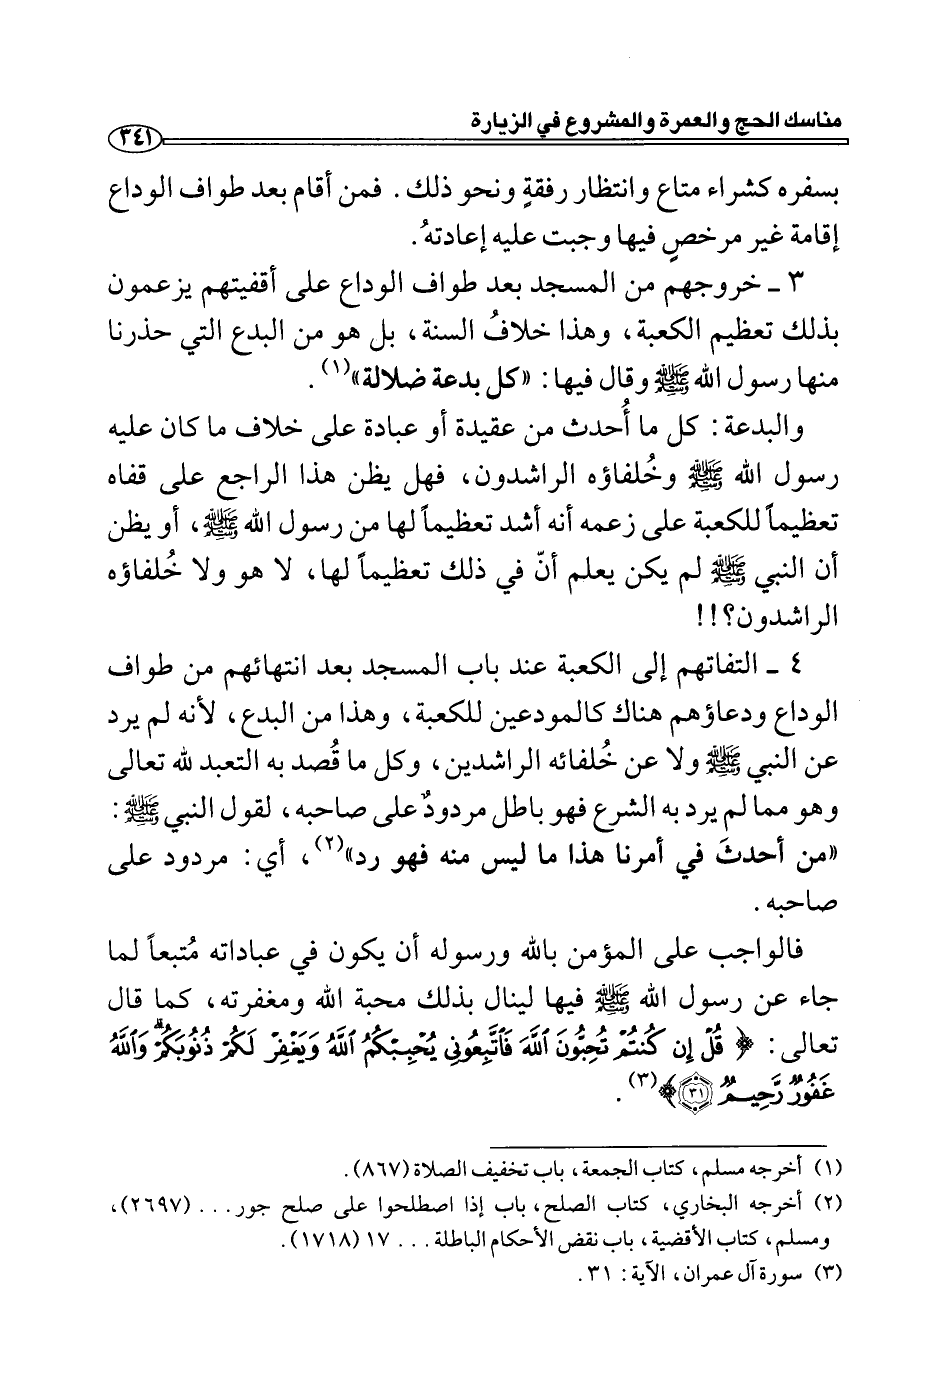 مناسك الحج والعمرة والمشروع في الزيارة
٣٤١
بسفره كشراء متاع وانتظار رفقةٍ ونحو ذلك. فمن أقام بعد طواف الوداع
إقامة غير مرخصٍ فيها وجبت عليه إعادتهُ.
٣ ـ خروجهم من المسجد بعد طواف الوداع على أقفيتهم يزعمون
بذلك تعظيم الكعبة، وهذا خلافُ السنة، بل هو من البدع التي حذرنا
منها رسول الله ﷺ وقال فيها: «كل بدعة ضلالة»(١).
والبدعة: كل ما أُحدث من عقيدة أو عبادة على خلاف ما كان عليه
رسول الله ﷺ وخُلفاؤه الراشدون، فهل يظن هذا الراجع على قفاه
تعظيماً للكعبة على زعمه أنه أشد تعظيماً لها من رسول الله ﷺ، أو يظن
أن النبي ﷺ لم يكن يعلم أنّ في ذلك تعظيماً لها، لا هو ولا خُلفاؤه
الراشدون؟!!
٤ ـ التفاتهم إلى الكعبة عند باب المسجد بعد انتهائهم من طواف
الوداع ودعاؤهم هناك كالمودعين للكعبة، وهذا من البدع، لأنه لم يرد
عن النبي ﷺ ولا عن خُلفائه الراشدين، وكل ما قُصد به التعبد لله تعالى
وهو مما لم يرد به الشرع فهو باطل مردودٌ على صاحبه، لقول النبي ﷺ:
«من أحدثَ في أمرنا هذا ما ليس منه فهو رد»(٢)، أي: مردود على
صاحبه.
فالواجب على المؤمن بالله ورسوله أن يكون في عباداته مُتبعاً لما
جاء عن رسول الله ﷺ فيها لينال بذلك محبة الله ومغفرته، كما قال
تعالى: ﴿ قُلْ إِن كُنتُمْ تُحِبُّونَ ٱللَّهَ فَٱتَّبِعُونِى يُحْبِبْكُمُ ٱللَّهُ وَيَغْفِرْ لَكُمْ ذُنُوبَكُمْ ۗ وَٱللَّهُ
غَفُورٌ رَّحِيمٌ ۝٣١﴾(٣).
(١) أخرجه مسلم، كتاب الجمعة، باب تخفيف الصلاة (٨٦٧).
(٢) أخرجه البخاري، كتاب الصلح، باب إذا اصطلحوا على صلح جور... (٢٦٩٧)،
ومسلم، كتاب الأقضية، باب نقض الأحكام الباطلة... ١٧ (١٧١٨).
(٣) سورة آل عمران، الآية: ٣١.